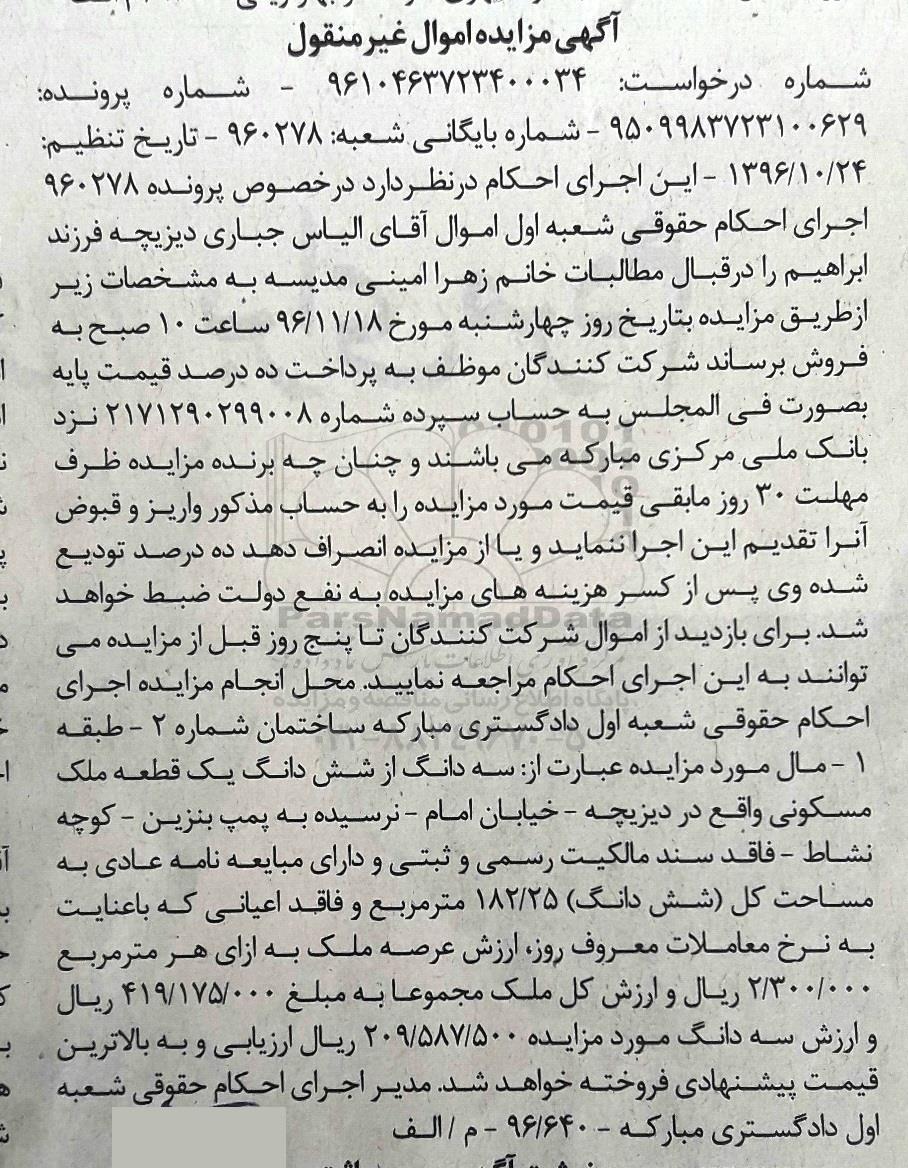 آگهی مزایده اموال غیرمنقول
شماره درخواست: ۹۶۱۰۴۶۳۷۲۳۴۰۰۰۳۴ - شماره پرونده:
۹۵۰۹۹۸۳۷۲۳۱۰۰۶۲۹ - شماره بایگانی شعبه: ۹۶۰۲۷۸ - تاریخ تنظیم:
۱۳۹۶/۱۰/۲۴ - این اجرای احکام درنظردارد درخصوص پرونده ۹۶۰۲۷۸
اجرای احکام حقوقی شعبه اول اموال آقای الیاس جباری دیزیچه فرزند
ابراهیم را درقبال مطالبات خانم زهرا امینی مدیسه به مشخصات زیر
ازطریق مزایده بتاریخ روز چهارشنبه مورخ ۹۶/۱۱/۱۸ ساعت ۱۰ صبح به
فروش برساند شرکت کنندگان موظف به پرداخت ده درصد قیمت پایه
بصورت فی المجلس به حساب سپرده شماره ۲۱۷۱۲۹۰۲۹۹۰۰۸ نزد
بانک ملی مرکزی مبارکه می باشند و چنان چه برنده مزایده ظرف
مهلت ۳۰ روز مابقی قیمت مورد مزایده را به حساب مذکور واریز و قبوض
آنرا تقدیم این اجرا ننماید و یا از مزایده انصراف دهد ده درصد تودیع
شده وی پس از کسر هزینه های مزایده به نفع دولت ضبط خواهد
ParsNamadData
شد. برای بازدید از اموال شرکت کنندگان تا پنج روز قبل از مزایده می
توانند به این اجرای احکام مراجعه نمایید. محل انجام مزایده اجرای
پایگاه اطلاع رسانی مناقصه و مزایده
احکام حقوقی شعبه اول دادگستری مبارکه ساختمان شماره ۲ - طبقه
۱ - مال مورد مزایده عبارت از: سه دانگ از شش دانگ یک قطعه ملک
مسکونی واقع در دیزیچه - خیابان امام - نرسیده به پمپ بنزین - کوچه
نشاط - فاقد سند مالکیت رسمی و ثبتی و دارای مبایعه نامه عادی به
مساحت کل (شش دانگ) ۱۸۲/۲۵ مترمربع و فاقد اعیانی که باعنایت
به نرخ معاملات معروف روز، ارزش عرصه ملک به ازای هر مترمربع
۲/۳۰۰/۰۰۰ ریال و ارزش کل ملک مجموعا به مبلغ ۴۱۹/۱۷۵/۰۰۰ ریال
و ارزش سه دانگ مورد مزایده ۲۰۹/۵۸۷/۵۰۰ ریال ارزیابی و به بالاترین
قیمت پیشنهادی فروخته خواهد شد. مدیر اجرای احکام حقوقی شعبه
اول دادگستری مبارکه - ۹۶/۶۴۰ - م / الف